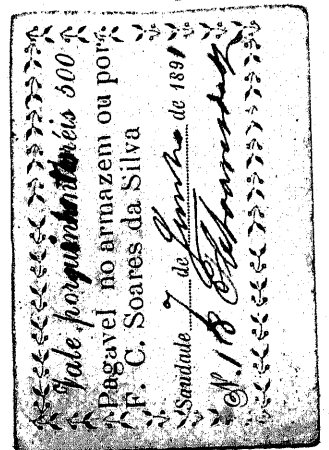 Vale por quinhentos réis 500
Pagavel no armazem ou por
F. C. Soares da Silva
Saudade 7 de Junho de 1891
Nº 18